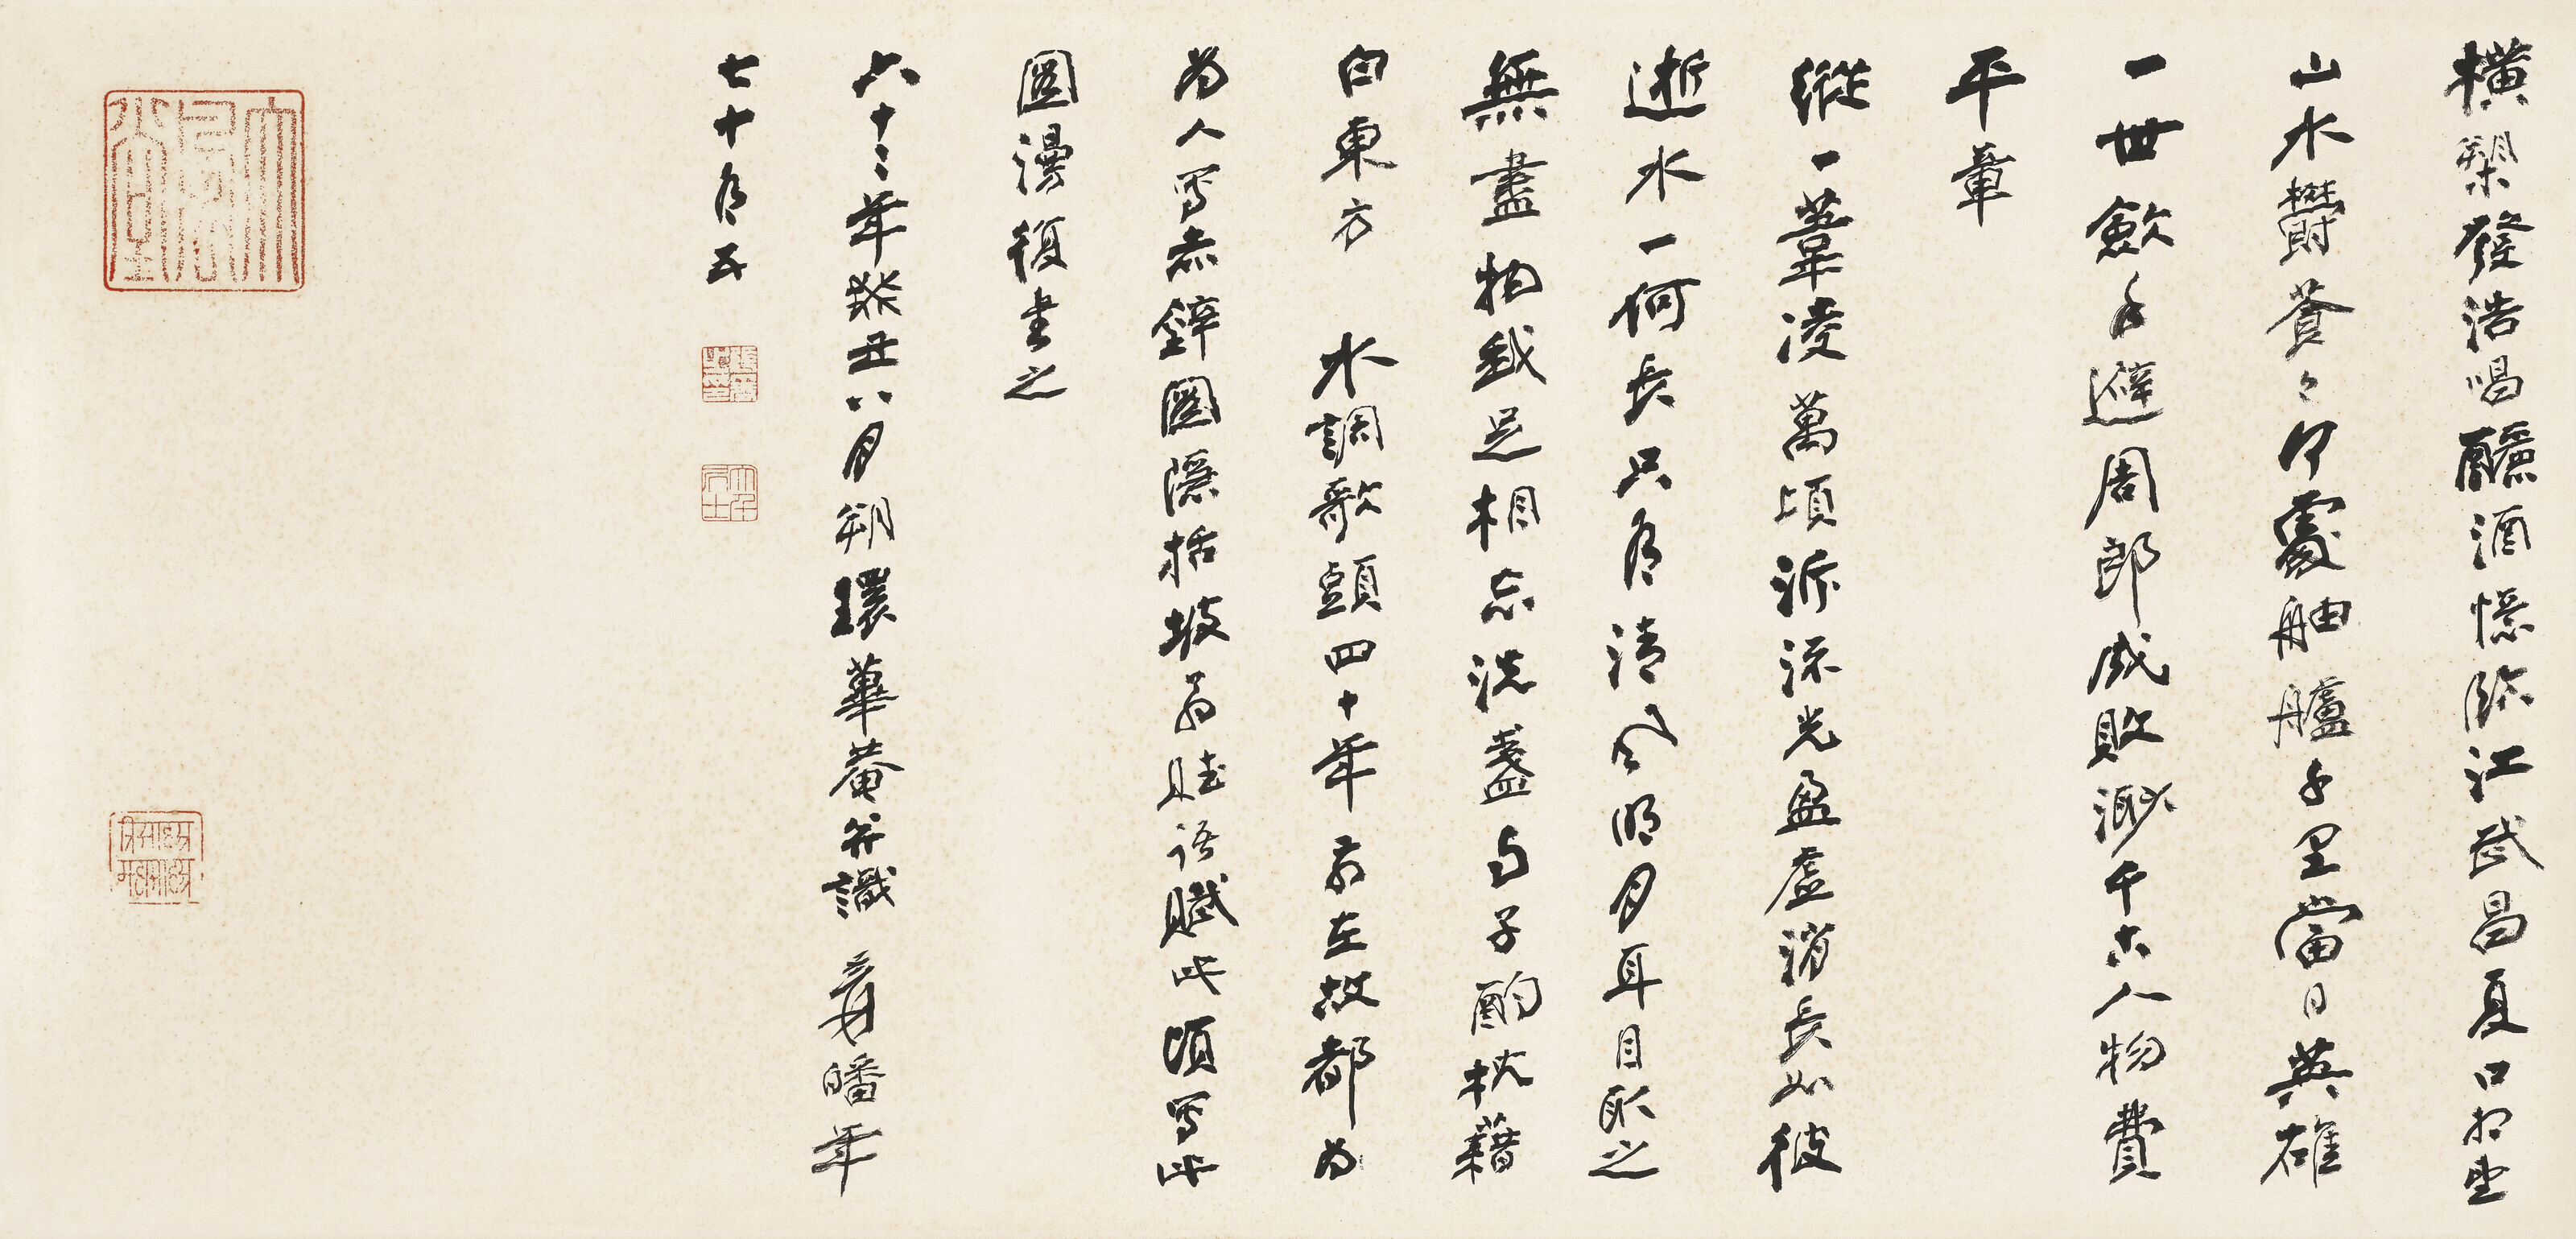 橫槊發浩唱釃酒憶臨江武昌夏口相望
山水鬱蒼々何處舳艫千里當日英雄
一世歛手避周郎成敗渺千古人物費
平章
縱一葦凌萬頃泝流光盈虛消長如彼
逝水一何長只有清風明月耳目取之
無盡物我足相忘洗盞与子酌枕藉
白東方 水調歌頭四十年前在故都為
為人寫赤壁圖隱括坡翁賦語賦此頃寫此
圖漫復書之
六十二年癸丑八月朔環蓽菴并識 爰皤年
七十有五
大風堂